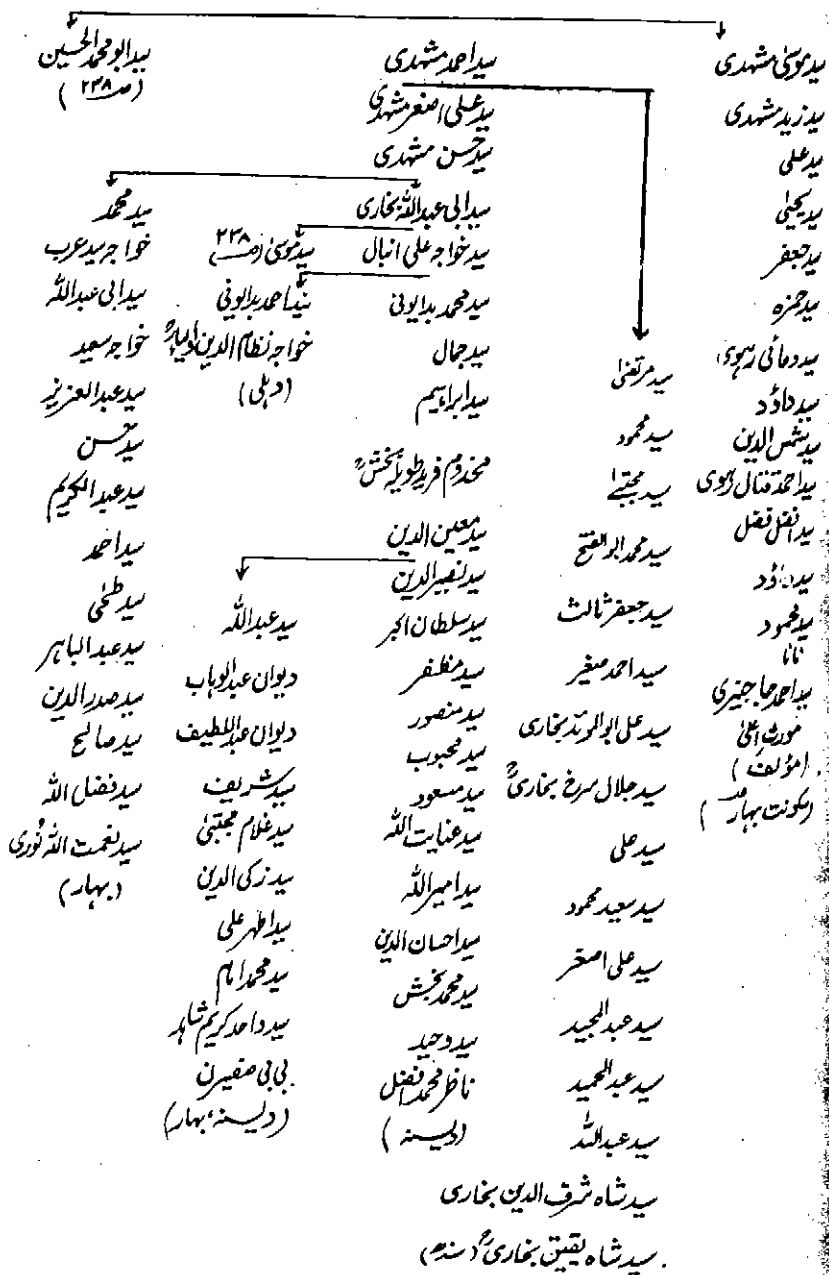 سید موسیٰ مشہدی
سید زید مشہدی
سید علی
سید یحییٰ
سید جعفر
سید حمزہ
سید داؤد
سید شمس الدین
سید احمد قتال زہوی
سید افضل فضل
سید داؤد
سید محمود
نانا
سید احمد جاجنیری
مورث اعلیٰ
(مؤلف)
(سکونت بہار)
سید احمد مشہدی
سید علی اصغر مشہدی
سید حسن مشہدی
سید ابی عبداللہ بخاری
سید خواجہ علی انبال
سید محمد بدایونی
سید جمال
سید ابراہیم
مخدوم فرید طویلہ بخشؒ
سید معین الدین
سید نصیر الدین
سید سلطان اکبر
سید مظفر
سید منصور
سید محبوب
سید مسعود
سید عنایت اللہ
سید امیر اللہ
سید احسان الدین
سید محمد بخش
سید وحید
ناظر محمد افضل
(دیسنہ)
سید مرتضیٰ
سید محمود
سید مجتبےٰ
سید محمد ابوالفتح
سید جعفر ثالث
سید احمد صغیر
سید علی ابوالموئد بخاری
سید جلال سرخ بخاریؒ
سید علی
سید سعید محمود
سید علی اصغر
سید عبدالمجید
سید عبدالحمید
سید عبداللہ
سید شاہ شرف الدین بخاری
سید شاہ یقیق بخاریؒ (سندھ)
سید موسیٰ (صـ ۲۳۸)
سید احمد بدایونی
خواجہ نظام الدین اولیاءؒ
(دہلی)
سید عبداللہ
دیوان عبدالوہاب
دیوان عبداللطیف
سید شریف
سید غلام مجتبیٰ
سید زکی الدین
سید اطہر علی
سید محمد امام
سید واحد کریم شاہد
بی بی صفیرن
(دیسنہ، بہار)
سید ابو محمد الحسین
(صـ ۲۳۸)
سید محمد
خواجہ سید عرب
سید ابی عبداللہ
خواجہ سعید
سید عبدالعزیز
سید حسن
سید عبدالکریم
سید احمد
سید طٰحٰی
سید عبدالباہر
سید صدر الدین
سید صالح
سید فضل اللہ
سید نعمت اللہ نوری
(بہار)